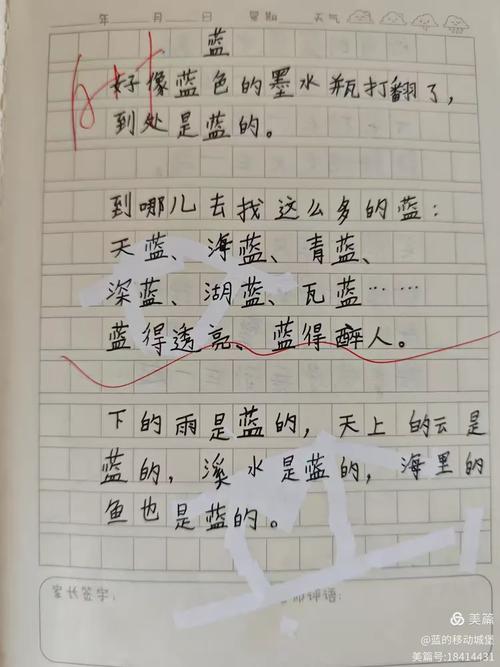 年 月 日 星期 天气
蓝
好像蓝色的墨水瓶打翻了，
到处是蓝的。
到哪儿去找这么多的蓝：
天蓝、海蓝、青蓝、
深蓝、湖蓝、瓦蓝……
蓝得透亮。蓝得醉人。
下的雨是蓝的，天上的云是
蓝的，溪水是蓝的，海里的
鱼也是蓝的。
家长签字：
评语：
美篇
@蓝的移动城堡
美篇号:18414431